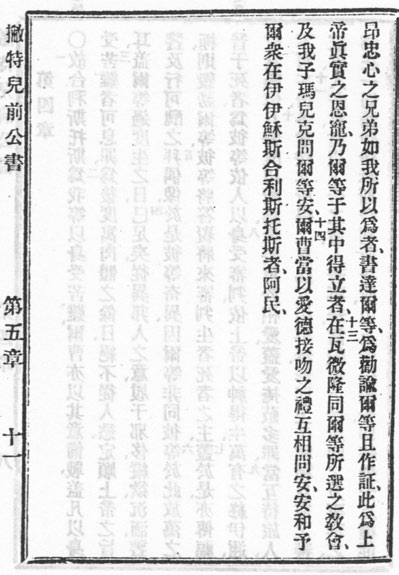 昂忠心之兄弟如我所以爲者、書達爾等、爲勸諭爾等且作証、此爲上
帝眞實之恩寵、乃爾等于其中得立者、十三在瓦微隆同爾等所選之敎會、
及我子瑪兒克問爾等安、十四爾曹當以愛德接吻之禮互相問安、安和予
爾衆在伊伊穌斯合利斯托斯者、阿民、
撇特兒前公書
第五章
十一